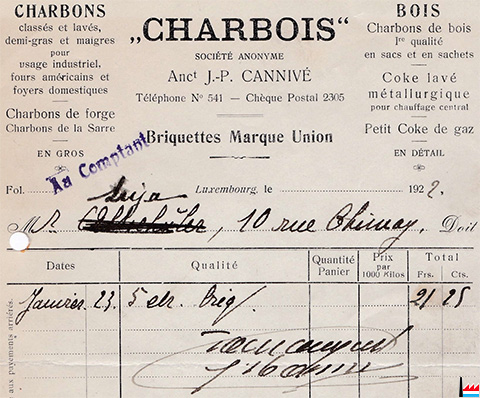 CHARBONS
classés et lavés,
demi-gras et maigres
pour
usage industriel,
fours américains et
foyers domestiques
Charbons de forge
Charbons de la Sarre
EN GROS
„CHARBOIS"
SOCIÉTÉ ANONYME
Anct J.-P. CANNIVÉ
Téléphone No 541 — Chèque Postal 2305
Briquettes Marque Union
BOIS
Charbons de bois
Ire qualité
en sacs et en sachets
Coke lavé
métallurgique
pour chauffage central
Petit Coke de gaz
EN DÉTAIL
Au Comptant
Fol. Luxembourg, le 1922.
Mr , 10 rue Chimay, Doit
Dates Qualité Quantité Panier Prix par 1000 Kilos Total Frs. Cts.
Janvier 23. 5 Briq 21 25
aux payements arriérés.